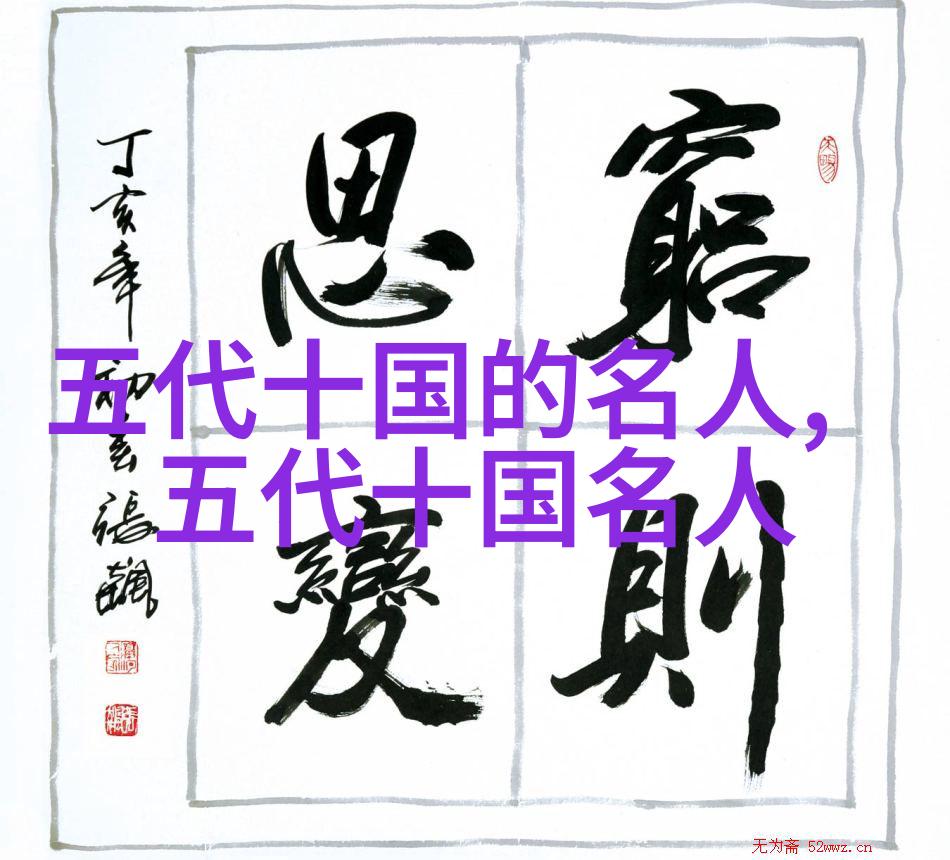 窮則
思變
丁亥年初春張飆
五代十国的名人,
五代十国名人
无为斋 52wwz.cn